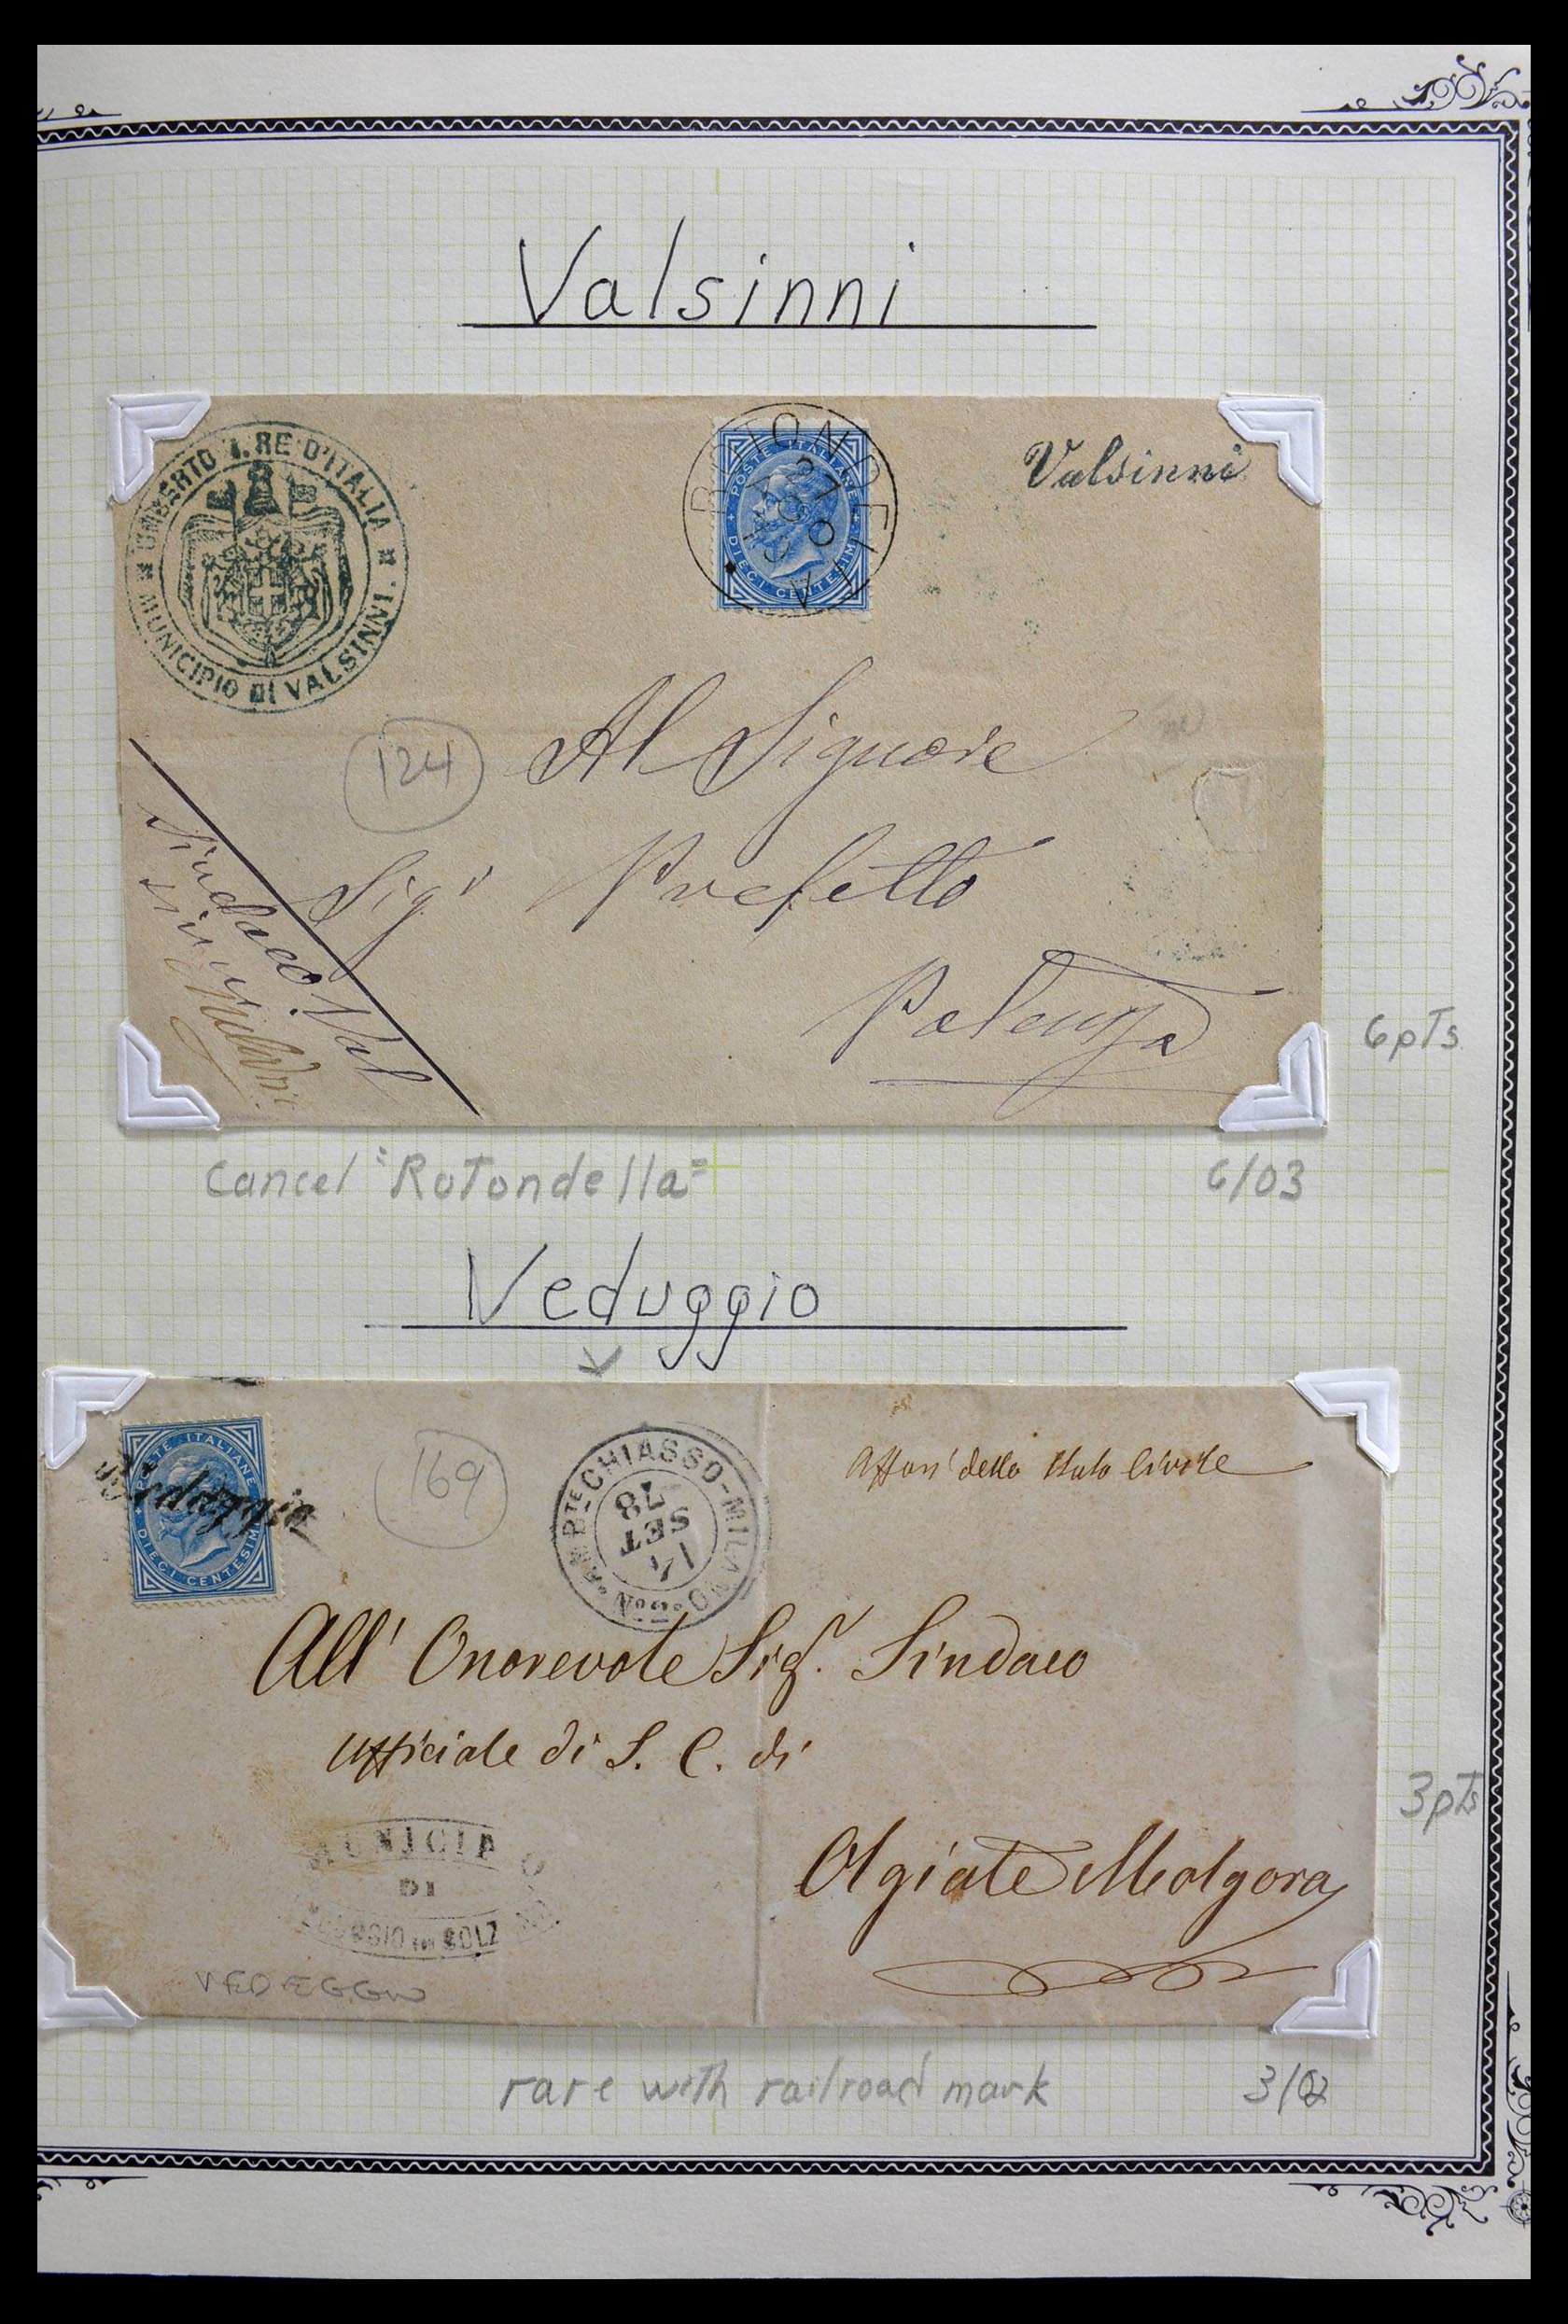 Valsinni
UMBERTO I. RE D'ITALIA
MUNICIPIO DI VALSINNI
ROTONDELLA
27
AGO
POSTE ITALIANE
DIECI CENTESIMI
Valsinni
124
Al Signore
Sigr Prefetto
Potenza
Sindaco Val
sinni
6pTs
cancel "Rotondella"
6/03
Veduggio
POSTE ITALIANE
DIECI CENTESIMI
Veduggio
169
AMBTE CHIASSO-MILANO
14
SET
78
Affari dello Stato Civile
All' Onorevole Sigr. Sindaco
Ufficiale di S. C. di
Olgiate Molgora
MUNICIPIO
DI
VEDEGGIO
3pts
rare with railroad mark
3/02